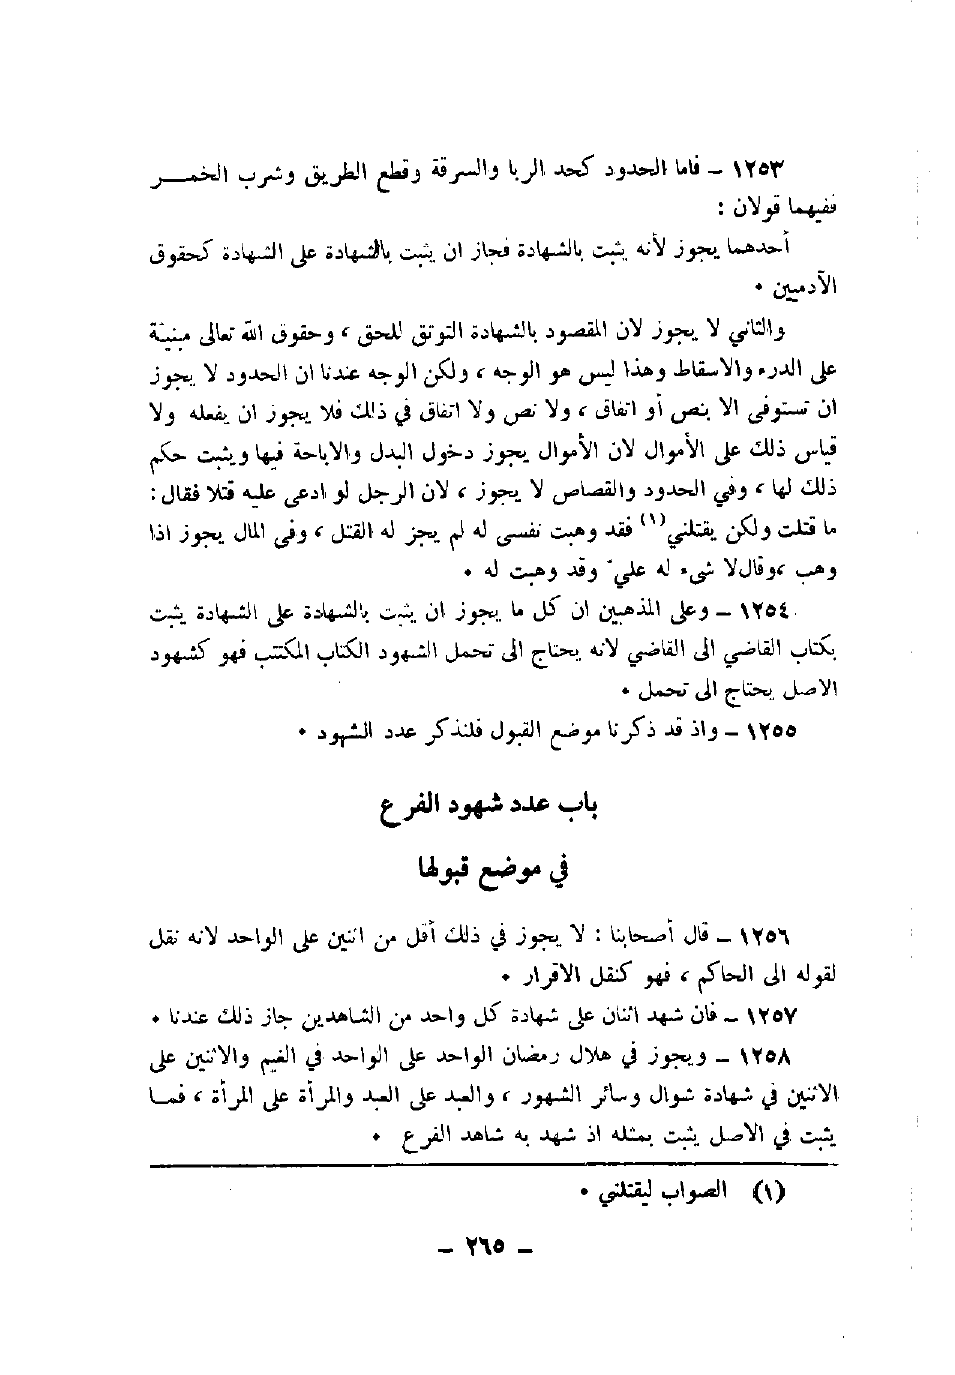 ١٢٥٣ – فاما الحدود كحد الربا والسرقة وقطع الطريق وشرب الخمـــر
ففيهما قولان :
أحدهما يجوز لأنه يثبت بالشهادة فجاز ان يثبت بالشهادة على الشهادة كحقوق
الآدميين •
والثاني لا يجوز لان المقصود بالشهادة التوثق للحق ، وحقوق الله تعالى مبنية
على الدرء والاسقاط وهذا ليس هو الوجه ، ولكن الوجه عندنا ان الحدود لا يجوز
ان تستوفى الا بنص أو اتفاق ، ولا نص ولا اتفاق في ذلك فلا يجوز ان يفعله ولا
قياس ذلك على الأموال لان الأموال يجوز دخول البدل والاباحة فيها ويثبت حكم
ذلك لها ، وفي الحدود والقصاص لا يجوز ، لان الرجل لو ادعى عليه قتلا فقال :
ما قتلت ولكن يقتلني(١) فقد وهبت نفسى له لم يجز له القتل ، وفى المال يجوز اذا
وهب ،وقال لا شىء له علي وقد وهبت له •
١٢٥٤ – وعلى المذهبين ان كل ما يجوز ان يثبت بالشهادة على الشهادة يثبت
بكتاب القاضي الى القاضي لانه يحتاج الى تحمل الشهود الكتاب المكتب فهو كشهود
الاصل يحتاج الى تحمل •
١٢٥٥ – واذ قد ذكرنا موضع القبول فلنذكر عدد الشهود •
باب عدد شهود الفرع
في موضع قبولها
١٢٥٦ – قال أصحابنا : لا يجوز في ذلك أقل من اثنين على الواحد لانه نقل
لقوله الى الحاكم ، فهو كنقل الاقرار •
١٢٥٧ – فان شهد اثنان على شهادة كل واحد من الشاهدين جاز ذلك عندنا •
١٢٥٨ – ويجوز في هلال رمضان الواحد على الواحد في الغيم والاثنين على
الاثنين في شهادة شوال وسائر الشهور ، والعبد على العبد والمرأة على المرأة ، فمـا
يثبت في الاصل يثبت بمثله اذ شهد به شاهد الفرع •
(١) الصواب ليقتلني •
– ٢٦٥ –